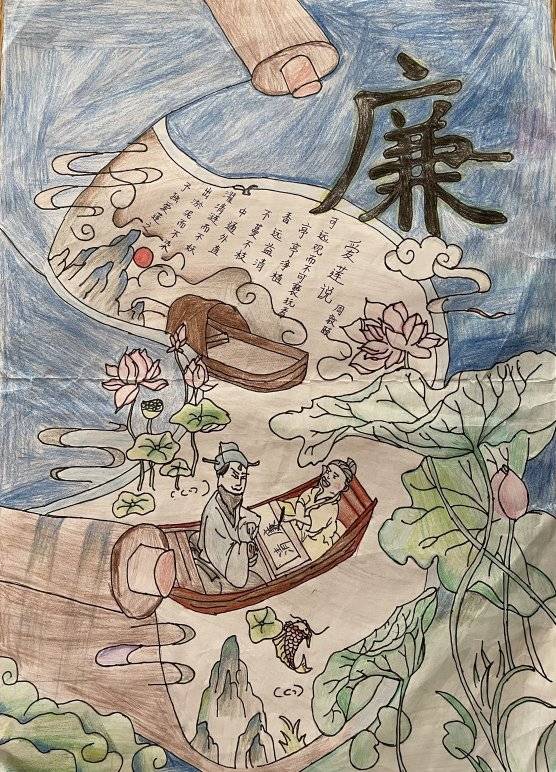 廉
爱莲说
周敦颐
可远观而不可亵玩焉
亭亭净植
香远益清
不蔓不枝
中通外直
濯清涟而不妖
出淤泥而不染
予独爱莲
清